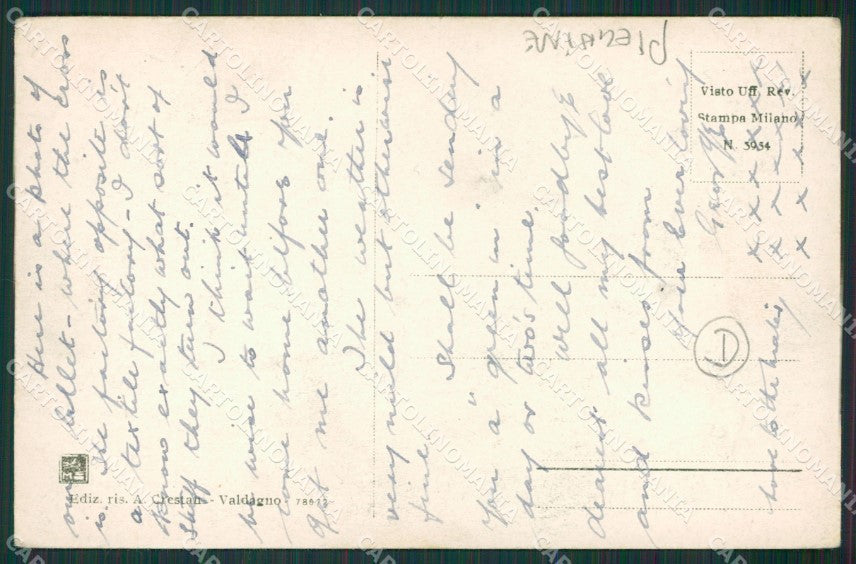 Here is a photo of
our billet - where the cross
is. The factory opposite is
a textile factory - I don't
know exactly what sort of
stuff they turn out.
I think it would
be wise to wait until I
come home before you
get me another one.
The weather is
very mild but otherwise
fine.
Shall be sending
you a "green un" in a
day or two's time.
Well goodbye
dearest all my best love
and kisses from
your Ever loving
George
x x x x x x x
x x x x x x
x x x x x x
love to the
PIEGHINE
D
Visto Uff. Rev.
Stampa Milano
N. 3954
Ediz. ris. A. Crestan - Valdagno - 78672
CARTOLINOMANIA